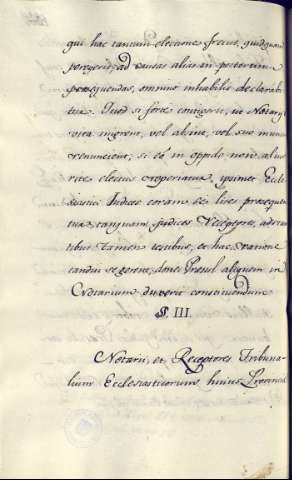 qui hac tantum electione fretus, quidquam
peregerit, ad causas alias in posterum
prosequendas, omnino inhabilis declarabi-
tur. Quod si forte contigerit, ut Notarij
vita migrent, vel absint, vel suo muneri
renuncient, si eo in oppido non alius
rite electus reperiatur, ipsimet Eccle-
siastici Iudices coram se lites prosequen-
tur, tanquam judices Receptores, adstan-
tibus tamen testibus, et hac ratione
tandiu se gerent, donec Præsul aliquem in
Notarium duxerit constituendum
§. III.
Notarii, et Receptores Tribuna-
lium Ecclesiasticorum huius Provinciæ